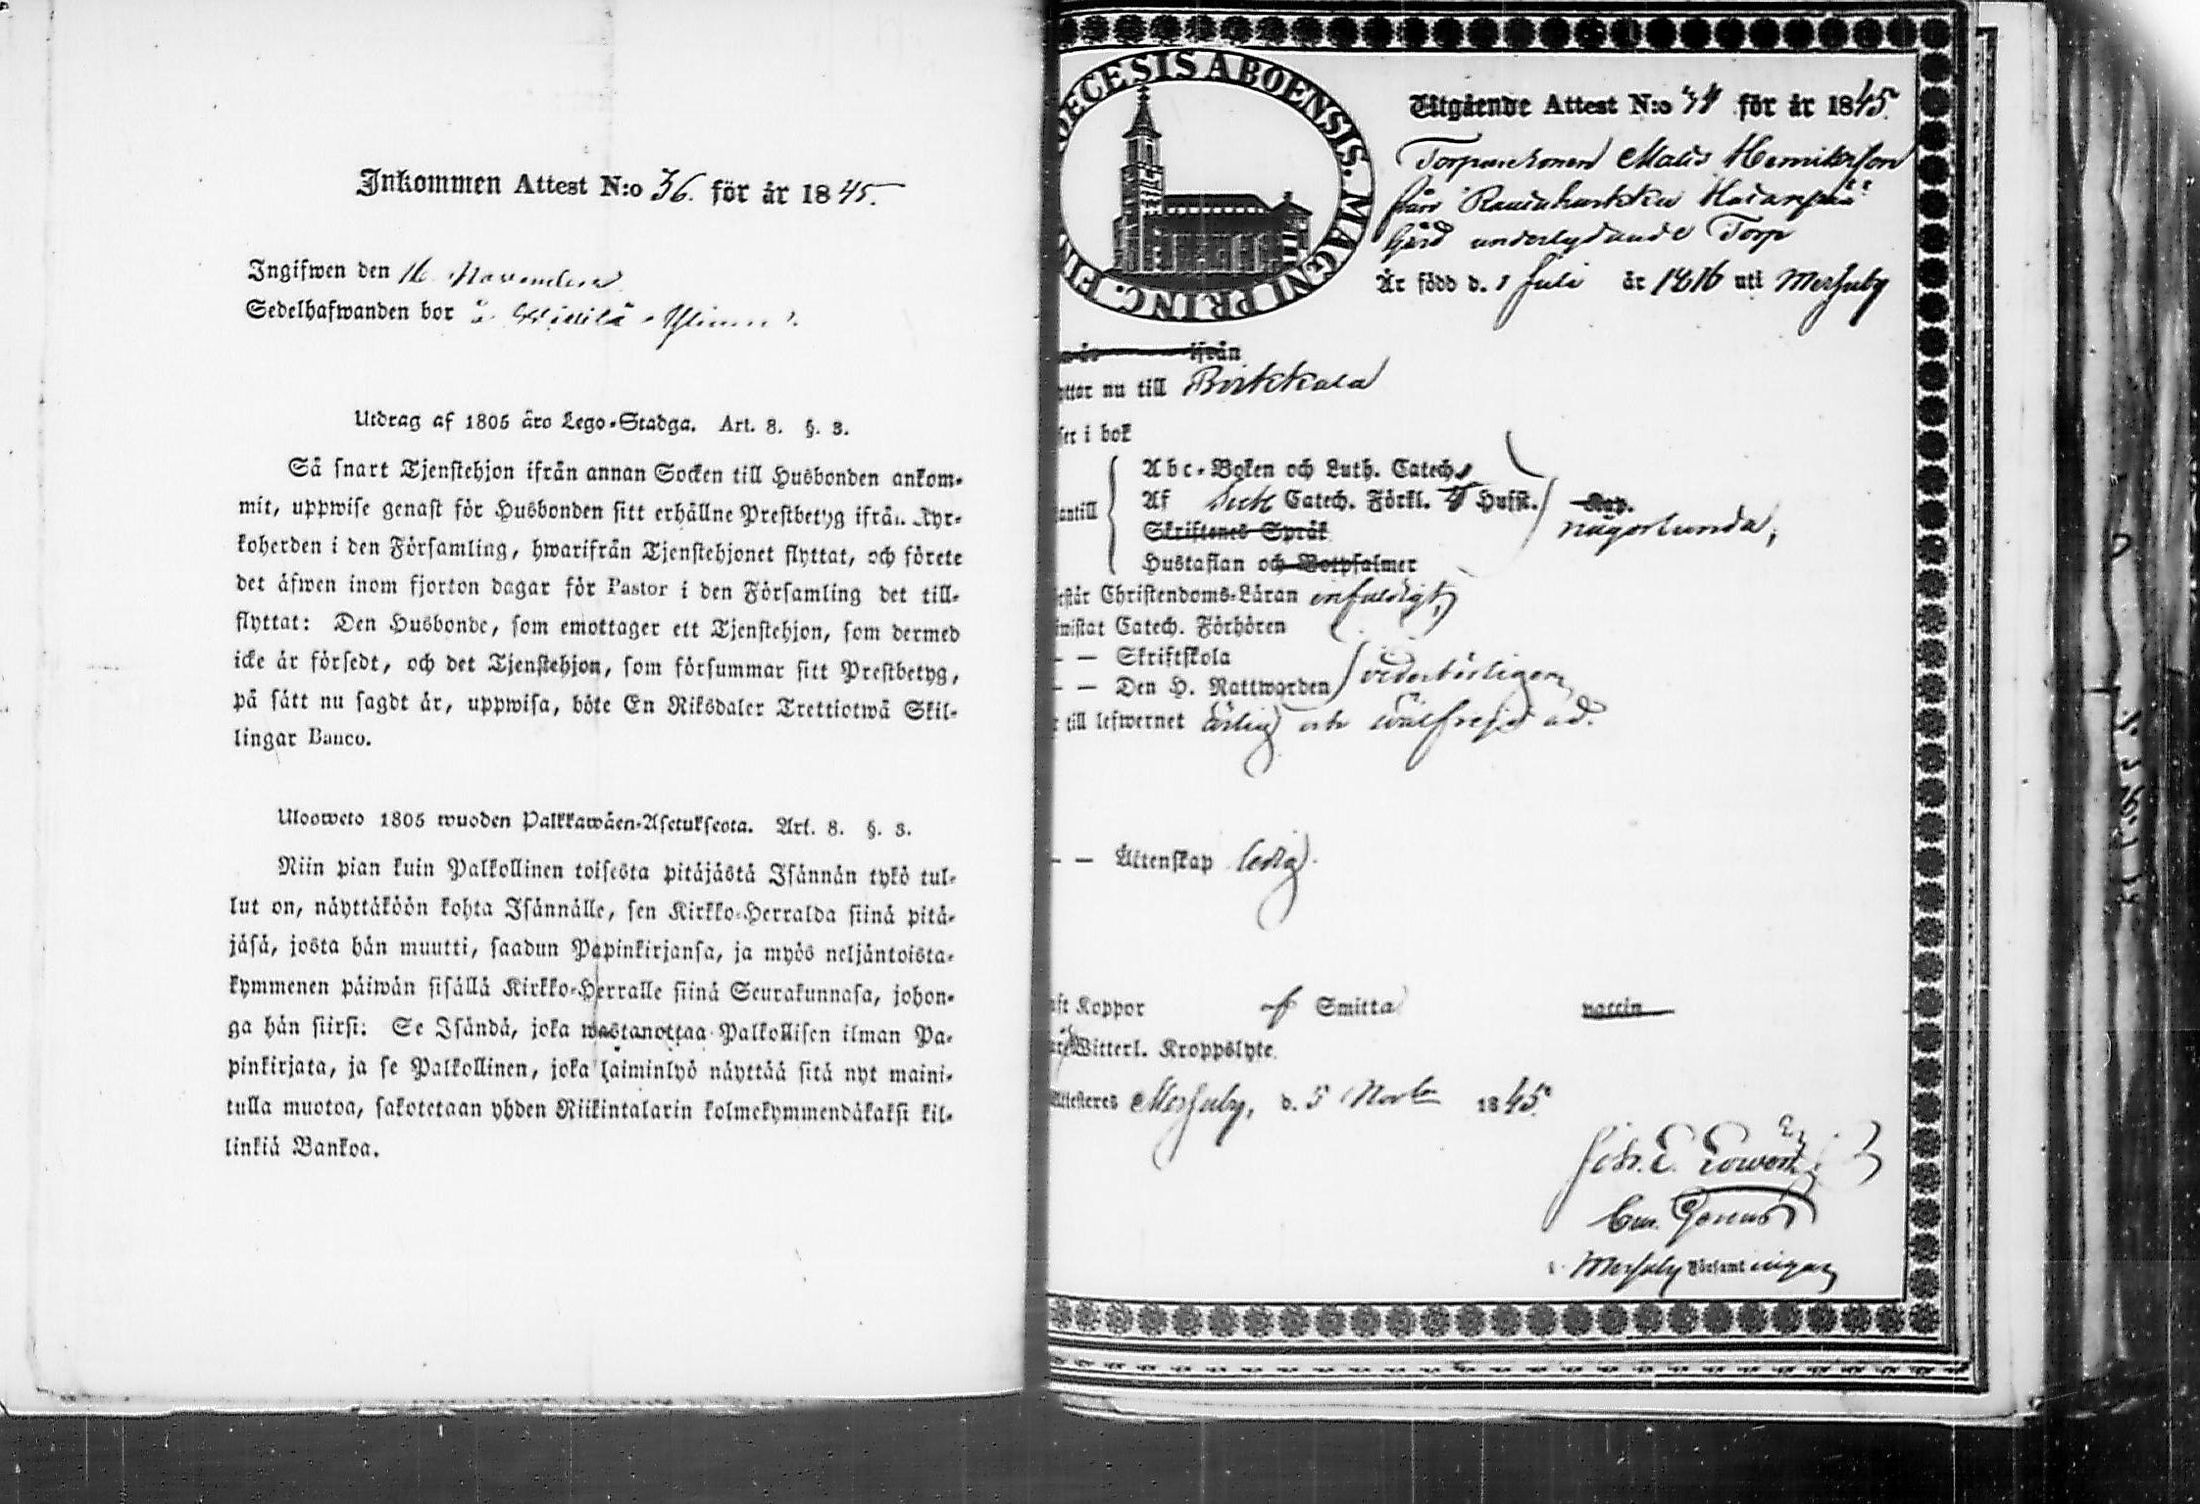 Inkommen Attest N:o 36. för år 1845.
Ingifwen den 16 November
Sedelhafwanden bor å
Utdrag af 1805 års Lego-Stadga. Art. 8. §. 3.
Så snart Tjenstehjon ifrån annan Socken till Husbonden ankom-
mit, uppwise genast för Husbonden sitt erhållne Prestbetyg ifrån Kyr-
koherden i den Församling, hwarifrån Tjenstehjonet flyttat, och förete
det äfwen inom fjorton dagar för Pastor i den Församling det till-
flyttat: Den Husbonde, som emottager ett Tjenstehjon, som dermed
icke är försedt, och det Tjenstehjon, som försummar sitt Prestbetyg,
på sätt nu sagdt är, uppwisa, böte En Riksdaler Trettiotwå Skil-
lingar Banco.
Ulosweto 1805 wuoden Palkkawäen-Asetuksesta. Art. 8. §. 3.
Niin pian kuin Palkollinen toisesta pitäjästä Isännän tykö tul-
lut on, näyttäköön kohta Isännälle, sen Kirkko-Herralda siinä pitä-
jäsä, josta hän muutti, saadun Papinkirjansa, ja myös neljäntoista-
kymmenen päiwän sisällä Kirkko-Herralle siinä Seurakunnasa, johon-
ga hän siirsi: Se Isändä, joka wastanottaa Palkollisen ilman Pa-
pinkirjata, ja se Palkollinen, joka laiminlyö näyttää sitä nyt maini-
tulla muotoa, sakotetaan yhden Riikintalarin kolmekymmendäkaksi kil-
linkiä Bankoa.
DIOECESIS ABOENSIS. MAGNI PRINC. FIN
Utgående Attest N:o för år 1845.
Torparesonen Matts Henriksson
från Haparspää
Gård underlydande Torp
Är född d. 1 Juli år 1816 uti Merjuby
ifrån
ttar nu till Birkkala
ser i bok
antill
Abc-Boken och Luth. Catech.
Af Catech. Förkl. Hufst. Kap.
Skriftenes Språk någorlunda,
Hustaflan och Botpsalmer
står Christendoms-Läran enfaldigt,
wistat Catech. Förhören
– – Skriftskola
– – Den H. Nattwarden wederbörligen
till lefwernet ärlig och wälfrejdad.
– – Äktenskap ledig.
Koppor af Smitta vaccin
Witterl. Kroppslyte
Attesteres Merjuby, d. 5 Novbr 1845.
Joh. E.
Merjuby Församlingar